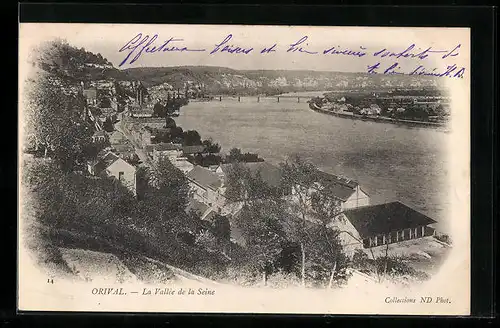 Affectueux baisers et bien sincères souhaits
14
ORIVAL. — La Vallée de la Seine
Collections ND Phot.